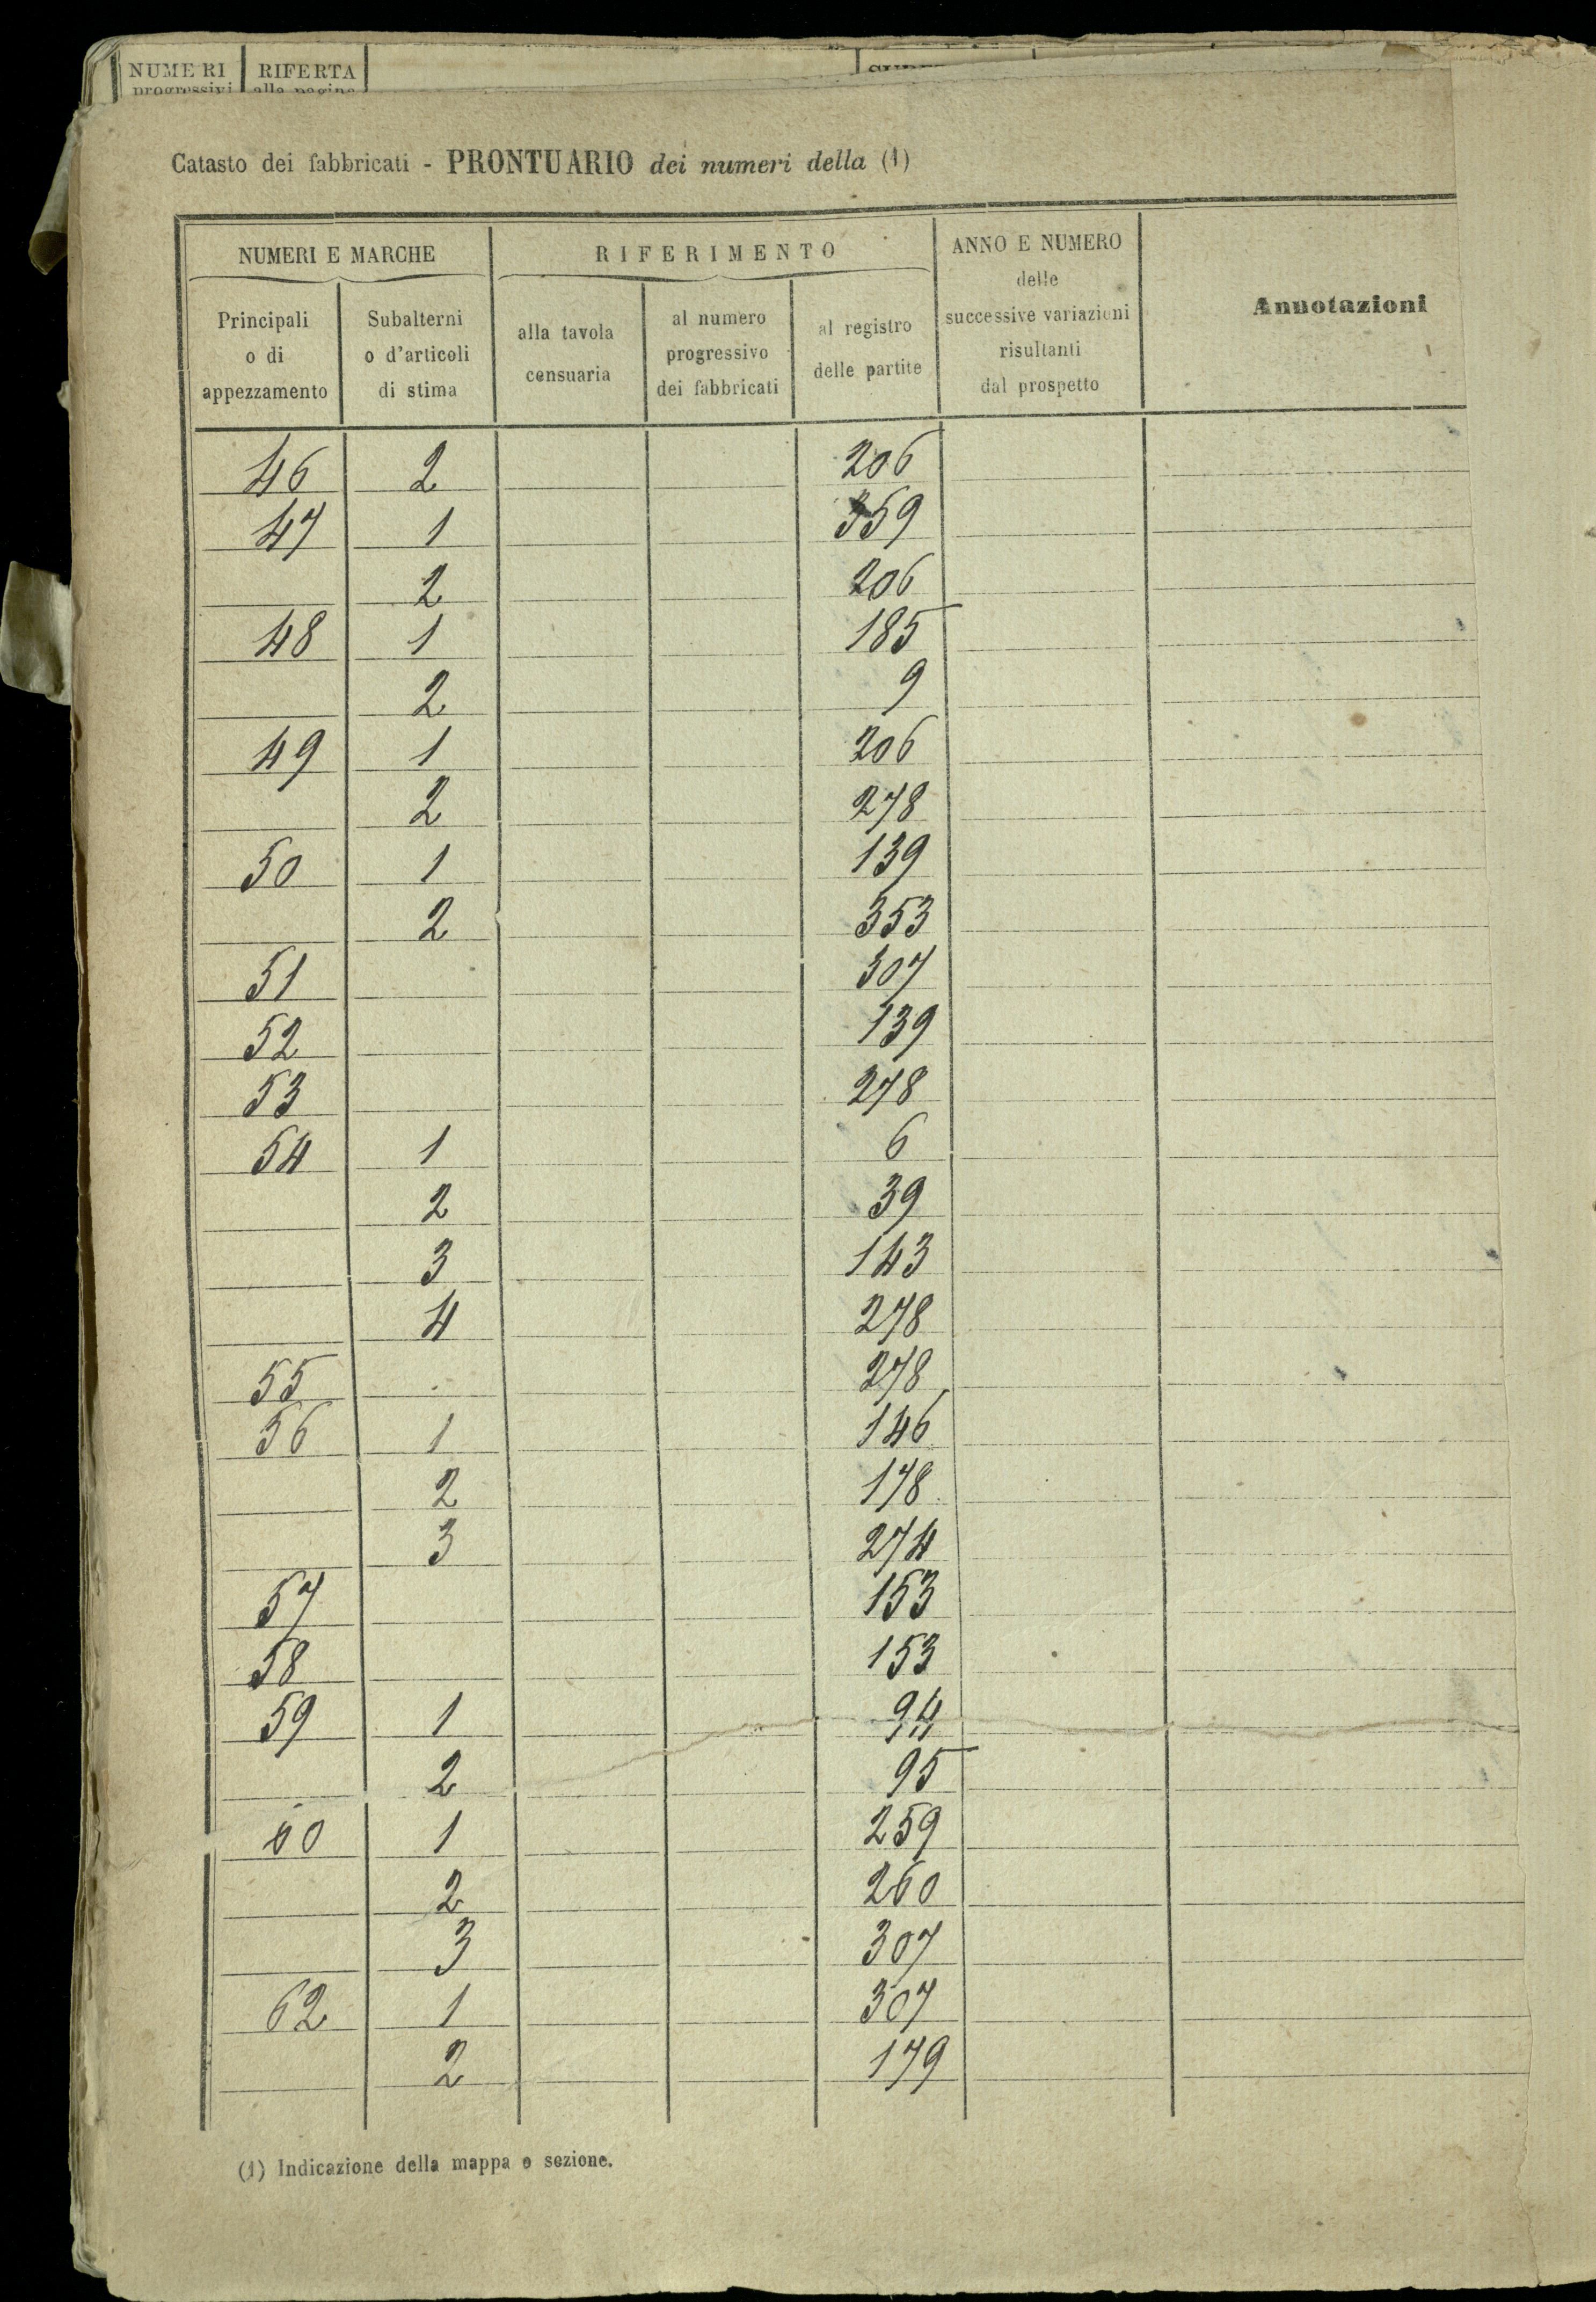 NUMERI RIFERTA
progressivi alla pagina
Catasto dei fabbricati - PRONTUARIO dei numeri della (1)
NUMERI E MARCHE
RIFERIMENTO
ANNO E NUMERO
delle
successive variazioni
risultanti
dal prospetto
Annotazioni
Principali
o di
appezzamento
Subalterni
o d'articoli
di stima
alla tavola
censuaria
al numero
progressivo
dei fabbricati
al registro
delle partite
46 2 206
47 1 359
2 206
48 1 185
2 9
49 1 206
2 278
50 1 139
2 353
51 307
52 139
53 278
54 1 6
2 39
3 143
4 278
55 278
56 1 146
2 178
3 274
57 153
58 153
59 1 94
2 95
60 1 259
2 260
3 307
62 1 307
2 179
(1) Indicazione della mappa o sezione.